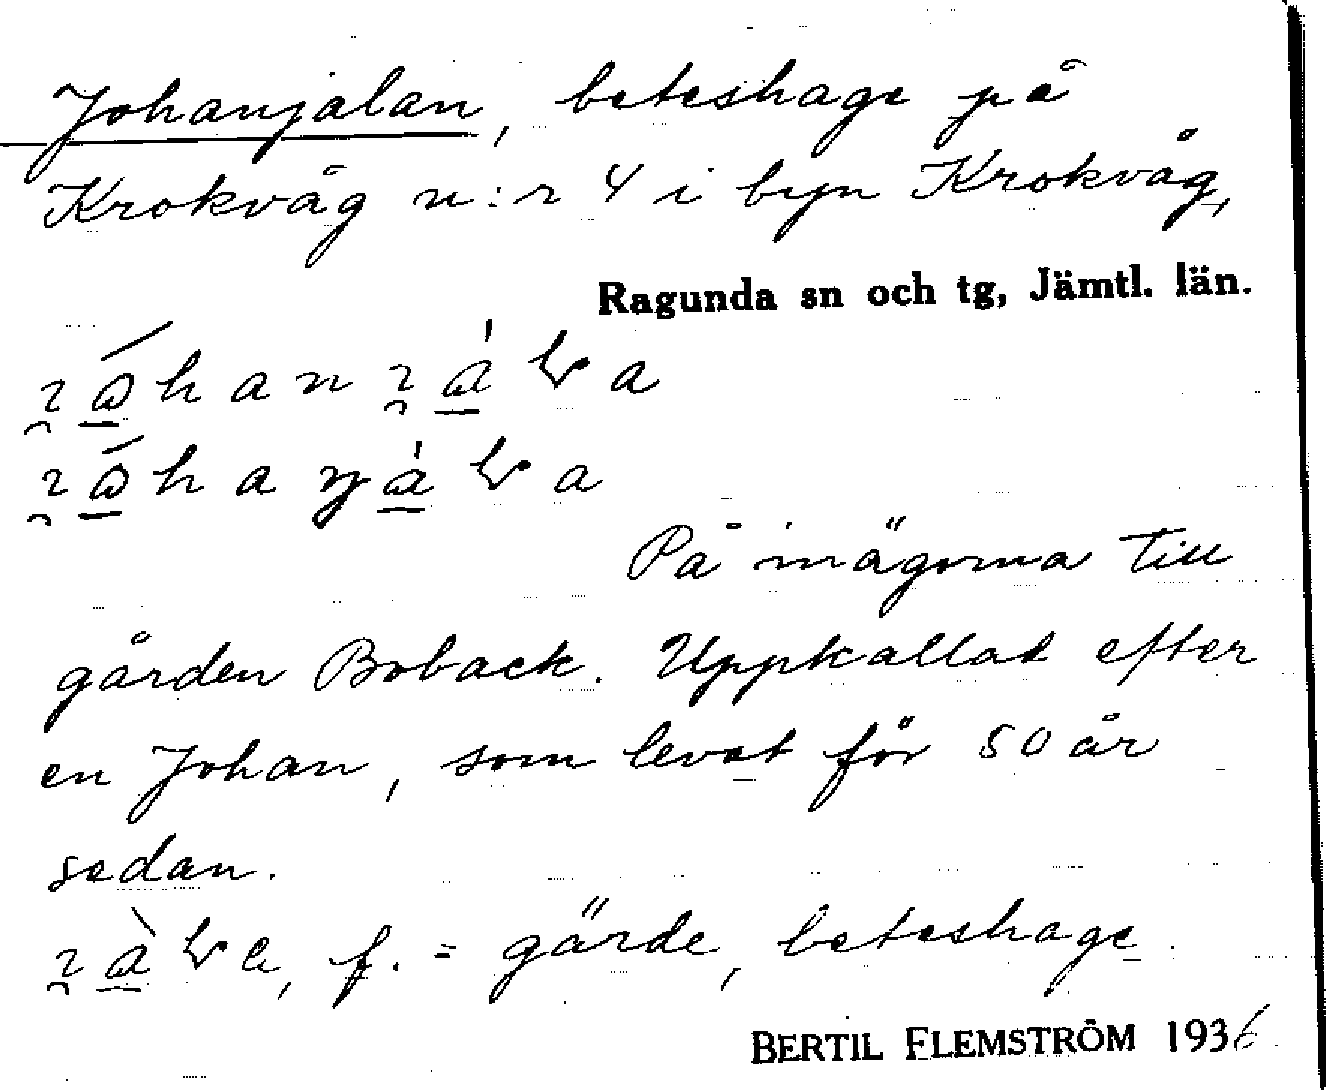 Johanjalan, beteshage på
Krokvåg n:r 4 i byn Krokvåg,
Ragunda sn och tg, Jämtl. län.
På inägorna till
gården Boback. Uppkallat efter
en Johan, som levat för 50 år
sedan.
f. = gärde, beteshage.
BERTIL FLEMSTRÖM 1936